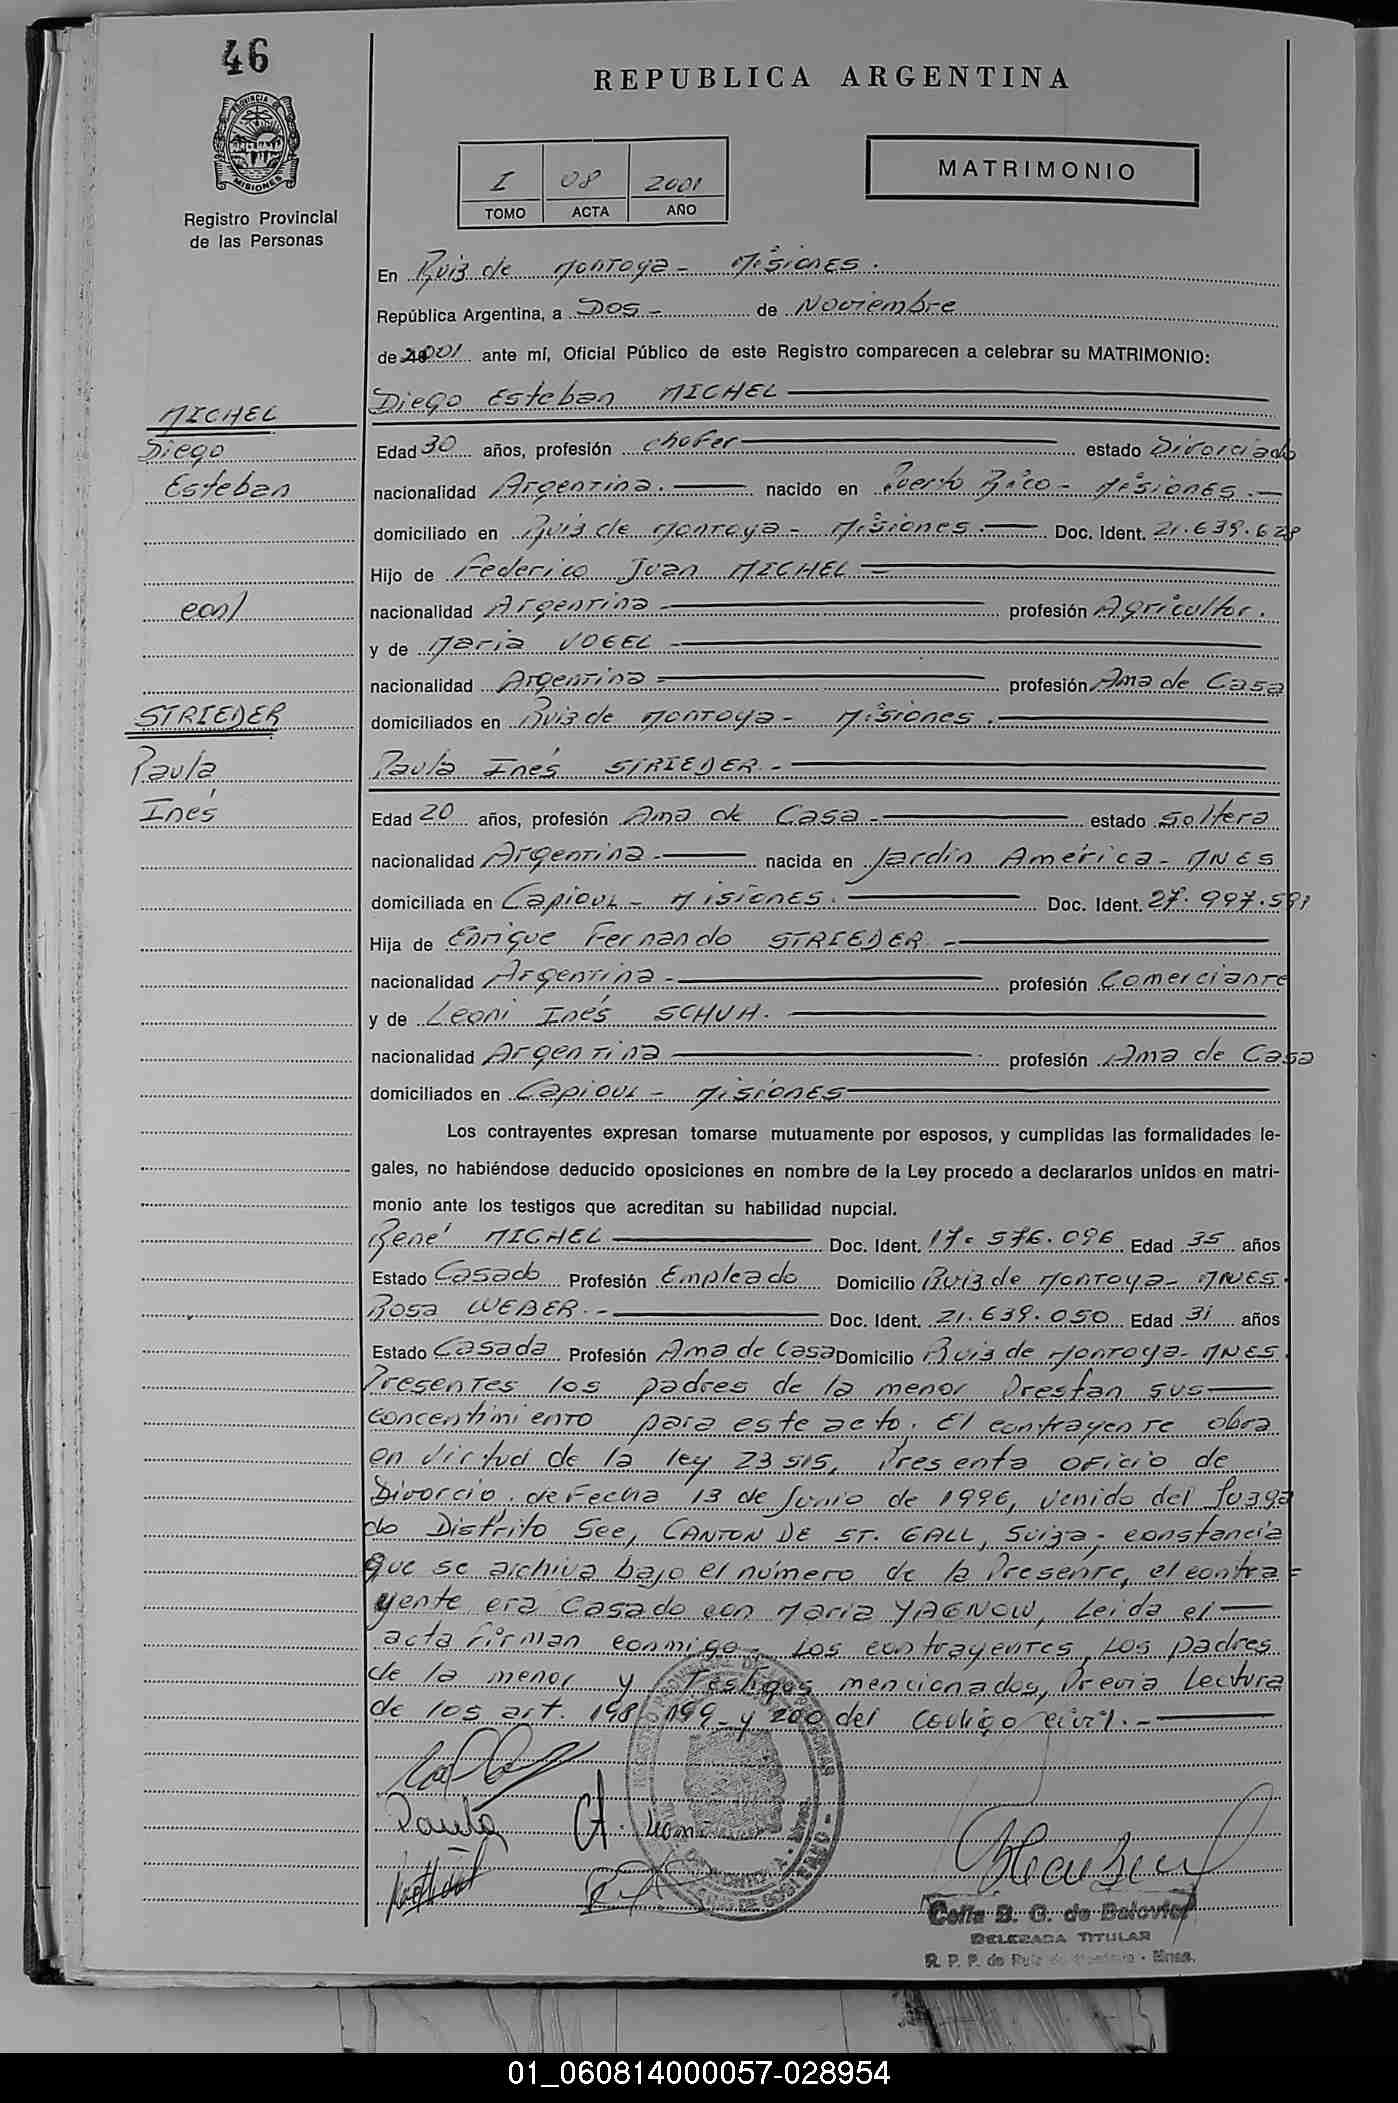 46
REPUBLICA ARGENTINA
PROVINCIA DE
MISIONES
Registro Provincial
de las Personas
I 08 2001
TOMO ACTA AÑO
MATRIMONIO
En Ruiz de Montoya - Misiones.
República Argentina, a Dos - de Noviembre
de 2001 ante mí, Oficial Público de este Registro comparecen a celebrar su MATRIMONIO:
MICHEL
Diego Esteban MICHEL
Diego
Edad 30 años, profesión chofer estado Divorciado
Esteban
nacionalidad Argentina. nacido en Puerto Rico - Misiones. -
domiciliado en Ruiz de Montoya - Misiones. Doc. Ident. 21.639.628
Hijo de Federico Juan MICHEL -
con/
nacionalidad Argentina - profesión Agricultor.
y de Maria VOGEL -
nacionalidad Argentina - profesión Ama de Casa
STRIEDER
domiciliados en Ruiz de Montoya - Misiones.
Paula
Paula Inés STRIEDER. -
Inés
Edad 20 años, profesión Ama de Casa - estado Soltera
nacionalidad Argentina - nacida en Jardín América - MNES
domiciliada en Capioví - Misiones. Doc. Ident. 27.997.591
Hija de Enrique Fernando STRIEDER. -
nacionalidad Argentina - profesión Comerciante
y de Leoni Inés SCHUH.
nacionalidad Argentina profesión Ama de Casa
domiciliados en Capioví - Misiones
Los contrayentes expresan tomarse mutuamente por esposos, y cumplidas las formalidades le-
gales, no habiéndose deducido oposiciones en nombre de la Ley procedo a declararlos unidos en matri-
monio ante los testigos que acreditan su habilidad nupcial.
René MICHEL Doc. Ident. 17.576.096 Edad 35 años
Estado Casado Profesión Empleado Domicilio Ruiz de Montoya - MNES.
Rosa WEBER. - Doc. Ident. 21.639.050 Edad 31 años
Estado Casada Profesión Ama de Casa Domicilio Ruiz de Montoya - MNES.
Presentes los padres de la menor Prestan sus
concentimiento para este acto. El contrayente obra
en virtud de la ley 23515, Presenta oficio de
Divorcio, de Fecha 13 de Junio de 1996, venido del Juzga
do Distrito See, CANTON DE ST. GALL, Suiza; constancia
que se archiva bajo el número de la Presente, el contra =
yente era Casado con Maria YAGNOW, Leida el
acta firman conmigo - Los contrayentes, Los padres
de la menor y Testigos mencionados, Previa Lectura
de los art. 198, 199 - y 200 del Codigo civil. -
Paula
DELEGADA TITULAR
01_060814000057-028954